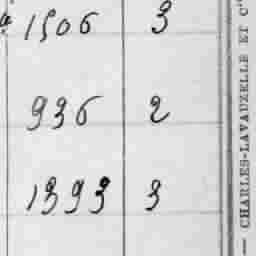 1506 3
936 2
1393 3
— CHARLES-LAVAUZELLE ET C